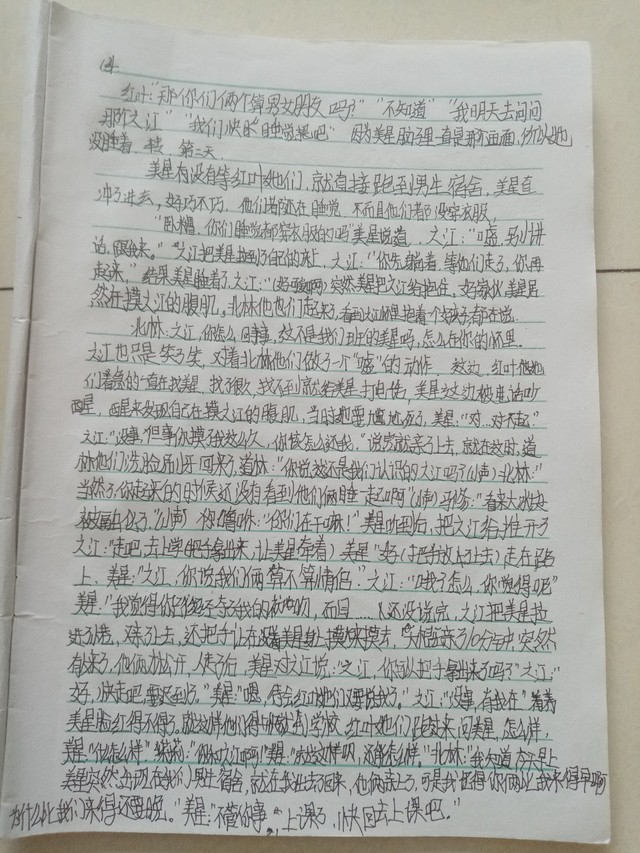 14.
红叶:"那你们俩个算男女朋友吗?" "不知道" "我明天去问问
那个之江" "我们快睡觉吧" 因为美星脑子里一直是那个画面,所以她
没睡着 第二天
美星有没有等红叶她们,就直接跑到男生宿舍,美星直
冲了进去,好巧不巧,他们都还在睡觉 不而且他们者没穿衣服,
"卧槽,你们睡觉都穿衣服的吗"美星说道,之江:"嘘,
话,跟我来。"之江把美星拉到了自己的床上,之江:"你先躺着,等他们走了,你再
起来," 结果美星睡着了,之江: 突然美星把之江给抱住,好家伙,美星居
然在摸之江的腹肌,北林他们也们起来了,看到之江怀里抱着一个
北林:之江,你怎么回事,这不是我们班的美星吗,怎么在你的怀里.
之江也只是笑了笑,对着北林他们做了一个"嘘"的动作, 这边,红叶他她
们着急的一直在找美星,找了很久,找不到就给美星打电话,美星这边被电话吵
醒,醒来发现自己在摸之江的腹肌,当时她要尴尬死了,美星:"对...对不起"
之江:"没事,但事你摸了我这么久,你该怎么还我."说完就亲了上去,就在这时,道
林他们洗脸刷牙回来了,道林:"你说这还是我们认识的之江吗?(小声) 北林:"
当然了,你起来的时候还没有看到他们俩睡一起啊(小声) "看来大冰块
被融化了"(小声) "你们在干嘛!" 美星听到后,把之江给推开了
之江:"走吧,去上学(把手拿出来,让美星牵着) 美星"好(把手放上去) 走在路
上,美星:"之江,你说我们俩算不算情侣." 之江:"哦?怎么,你觉得呢"
美星:"我觉得 夺了我的初吻,而且......还没说完,之江把美星拉
进 亲了上去,还把手 在美星 摸来摸去, 亲了10分钟,突然
有人来了,他俩才松开,人走了后,美星对之江说:"之江,你可以把手拿出来了吗?"之江:"
好,快走吧,要迟到了." 美星:"嗯,待会红叶她们又要说我了." 之江:"没事,有我在" 看着
美星脸红得不得了,就这样他们 到学校,红叶她们跑过来问美星,怎么样,
美星:"什么怎么样" :"你和之江啊!"美星:"就这样呗,还能怎么样." 北林:"我知道,今天早上
美星突然出现在我们男生宿舍,就在我 回来,他俩亲上了,可是我记得你俩比我来得早啊
为什么比我们来得还要晚。" 美星:"不懂的事 上课了,快回去上课吧."